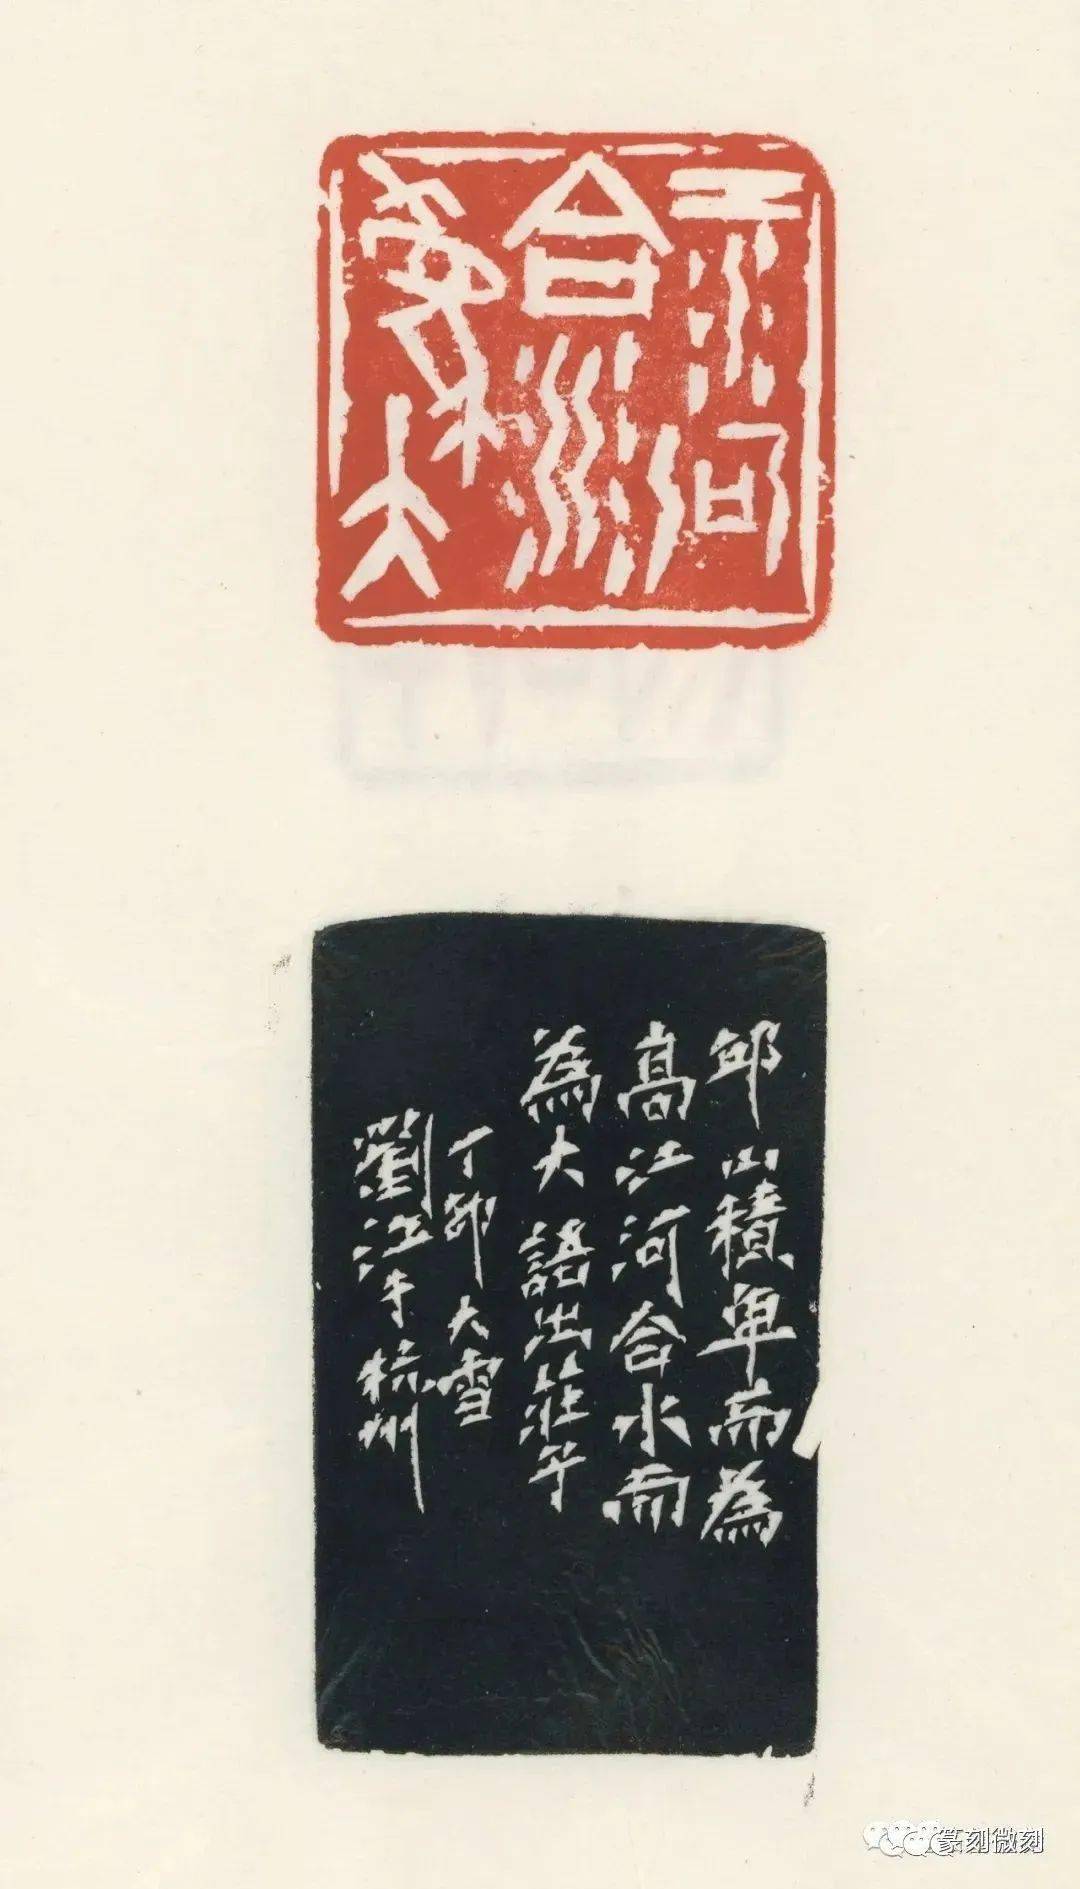 江河
合水
為大
邱山積卑而為
高江河合水而
為大 語出莊子
丁卯大雪
劉江于杭州
篆刻微刻